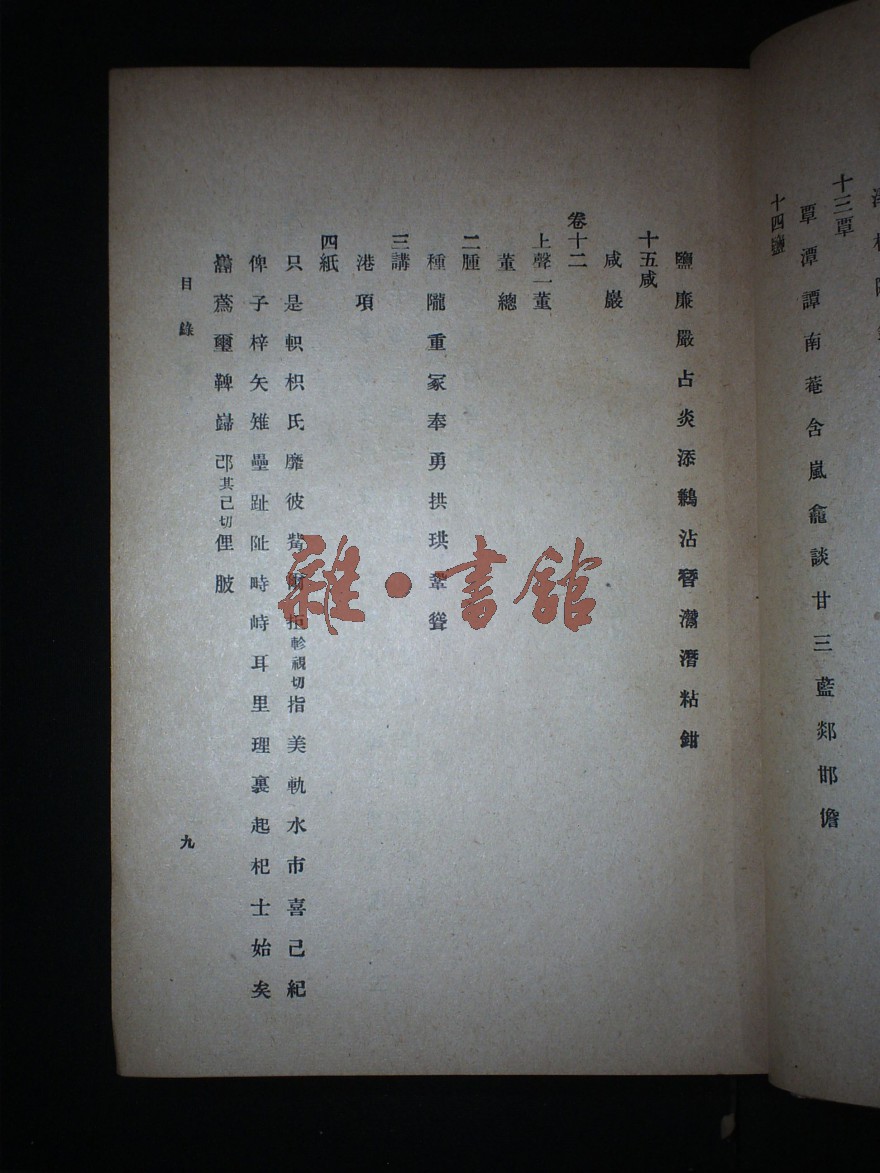 十三覃
覃潭譚南菴含嵐龕談甘三藍郯邯儋
十四鹽
鹽廉嚴占炎添鶼沾潛粘鉗
十五咸
咸巖
卷十二
上聲一董
董總
二腫
種隴重冢奉勇拱珙鞏聳
三講
港項
四紙
只是軹枳氏靡彼觜爾軫視切指美軌水市喜己紀
俾子梓矢雉壘趾阯畤峙耳里理裏起杞士始矣
蒍璽鞞其己切俚
目錄
九
雜·書館